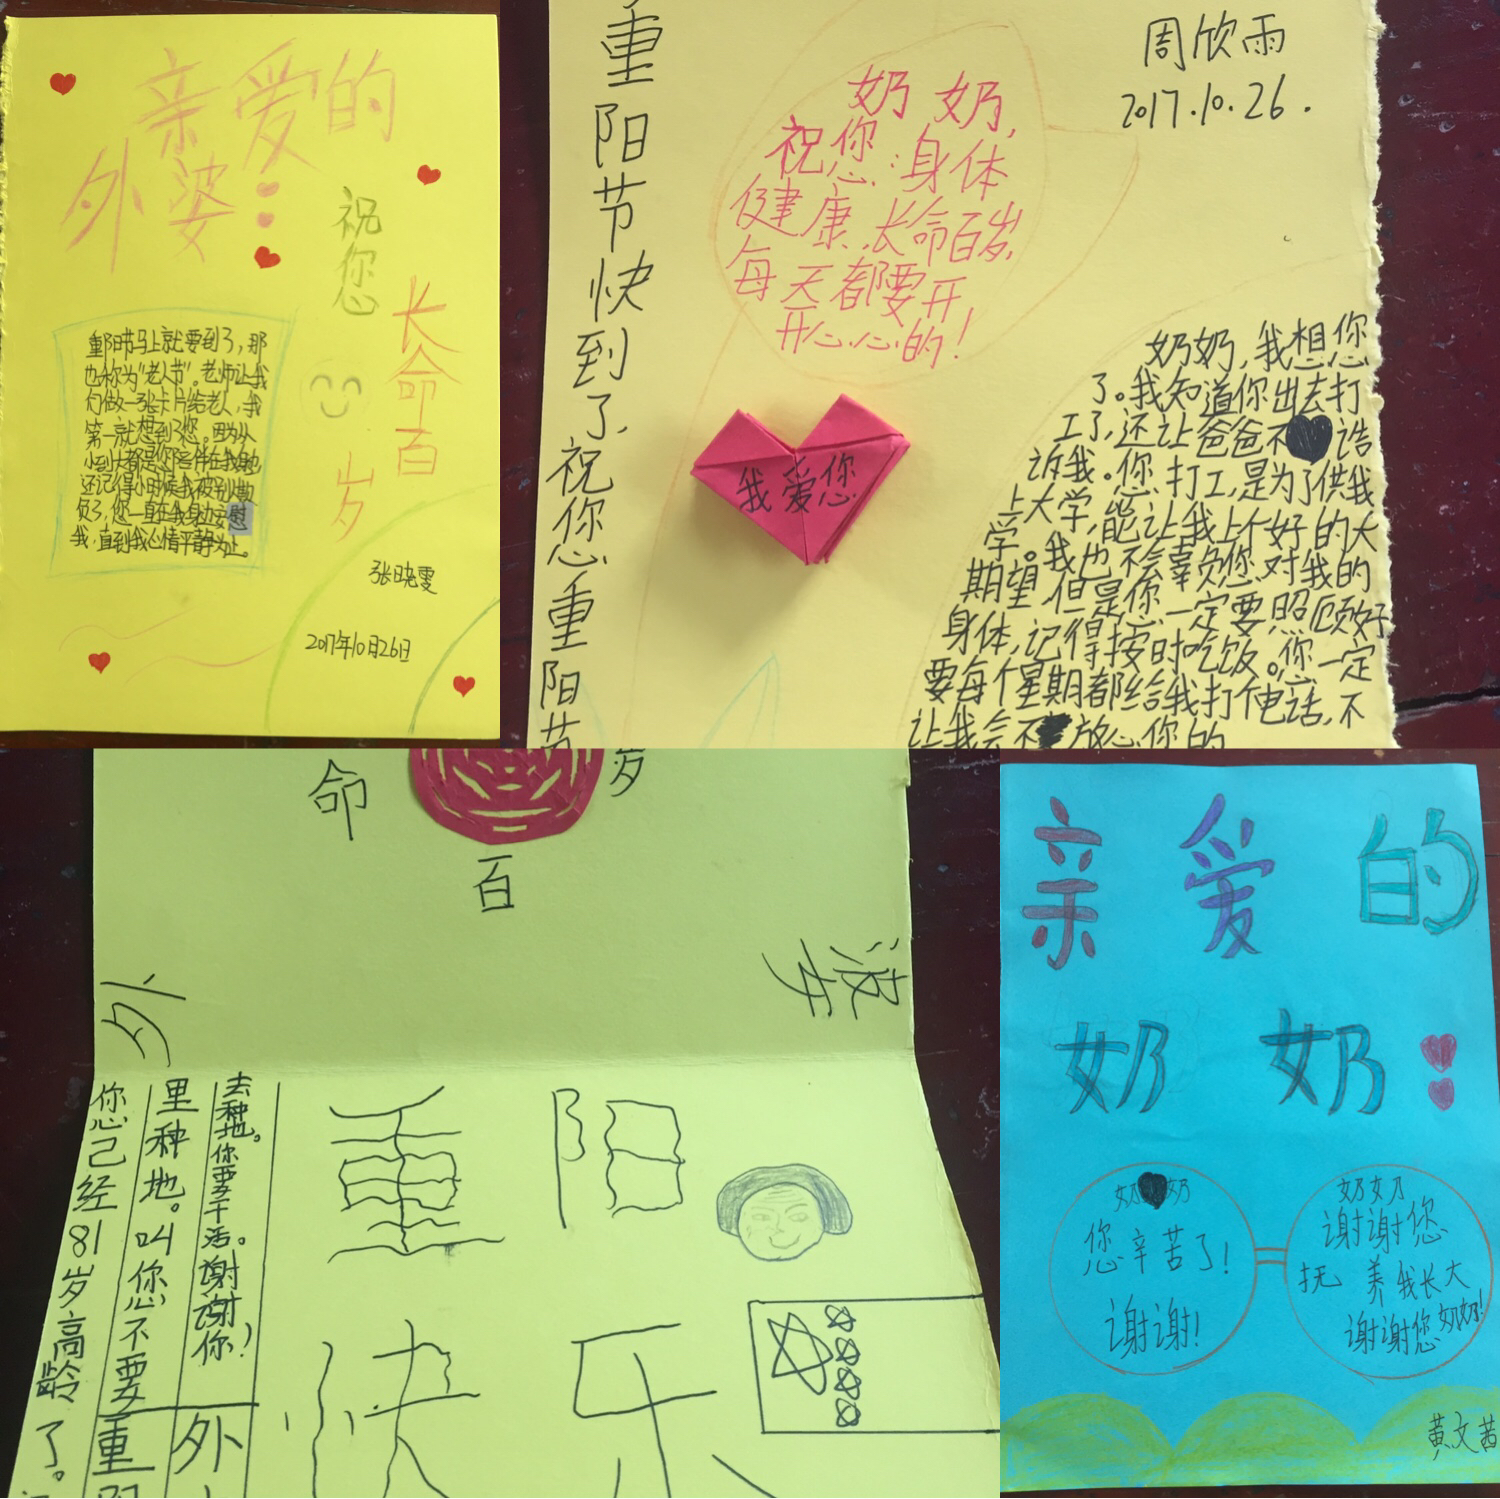 亲爱的
外婆：
祝您
长命百
岁
重阳节马上就要到了，那
也称为“老人节”。老师让我
们做一张卡片给老人，我
第一就想到了您。因为从
小到大都是你陪伴在我身边
还记得小时候我被别人欺
负了，您一直在我身边安慰
我，直到我心情平静为止。
张晓雯
2017年10月26日
重阳节快到了，祝您重阳节
奶奶，
祝您：身体
健康，长命百岁，
每天都要开
开心心的！
我爱您
周欣雨
2017.10.26.
奶奶，我想您
了。我知道你出去打
工了，还让爸爸不告
诉我。您打工，是为了供我
上大学，能让我上个好的大
学。我也不会辜负您对我的
期望，但是你一定要照顾好
身体，记得按时吃饭。你一定
要每个星期都给我打个电话，不
让我会不放心你的
命
岁
百
外
婆
重阳
快乐
去种地。你要干活。谢谢你！
里种地。叫您不要
你已经81岁高龄了。
外
重阳
亲爱的
奶奶：
奶奶
您辛苦了！
谢谢！
奶奶
谢谢您
抚养我长大
谢谢您奶奶！
黄文茜